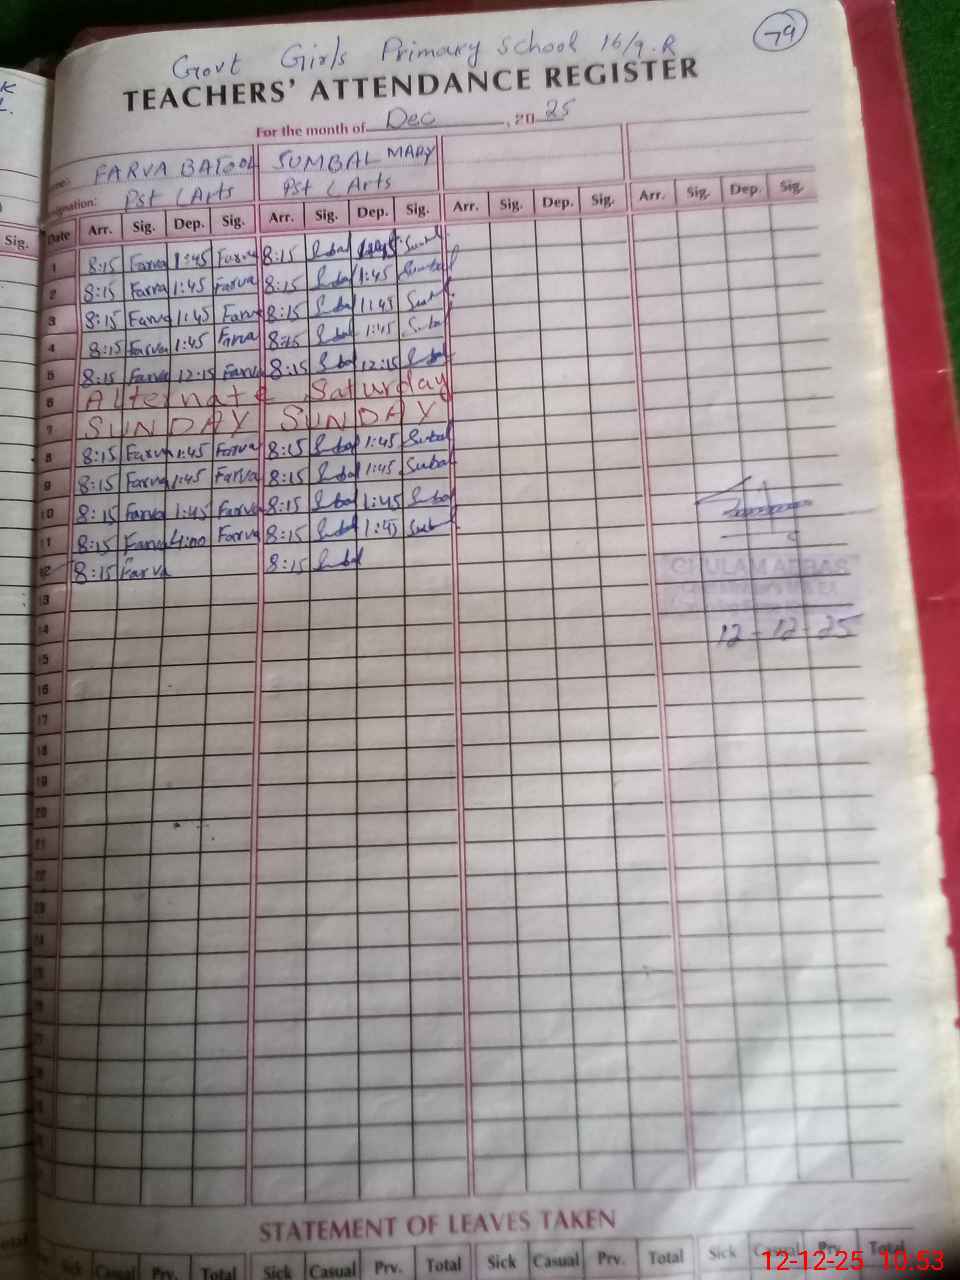 79
Govt Girls Primary School 16/9.R
TEACHERS' ATTENDANCE REGISTER
For the month of Dec, 20 25
FARVA BATOOL SUMBAL MARY
Designation: Pst (Arts Pst (Arts
Sig.
Date Arr. Sig. Dep. Sig. Arr. Sig. Dep. Sig. Arr. Sig. Dep. Sig. Arr. Sig. Dep. Sig.
1 8:15 Farva 1:45 Farva 8:15 Sumbal
2 8:15 Farva 1:45 Farva 8:15 Sumbal 1:45 Sumbal
3 8:15 Farva 1:45 Farva 8:15 Sumbal 1:45 Sumbal
4 8:15 Farva 1:45 Farva 8:15 Sumbal 1:45 Sumbal
5 8:15 Farva 12:15 Farva 8:15 Sumbal 12:15 Sumbal
6 Alternate Saturday
7 SUNDAY SUNDAY
8 8:15 Farva 1:45 Farva 8:15 Sumbal 1:45 Sumbal
9 8:15 Farva 1:45 Farva 8:15 Sumbal 1:45 Sumbal
10 8:15 Farva 1:45 Farva 8:15 Sumbal 1:45 Sumbal
11 8:15 Farva Farva 8:15 Sumbal 1:45 Sumbal
12 8:15 Farva 8:15 Sumbal
GHULAM ABBAS
13
14 12-12-25
15
16
17
18
19
20
21
22
23
24
STATEMENT OF LEAVES TAKEN
Sick Casual Prv. Total Sick Casual Prv. Total Sick Casual Prv. Total Sick Casual Prv. Total
12-12-25 10:53